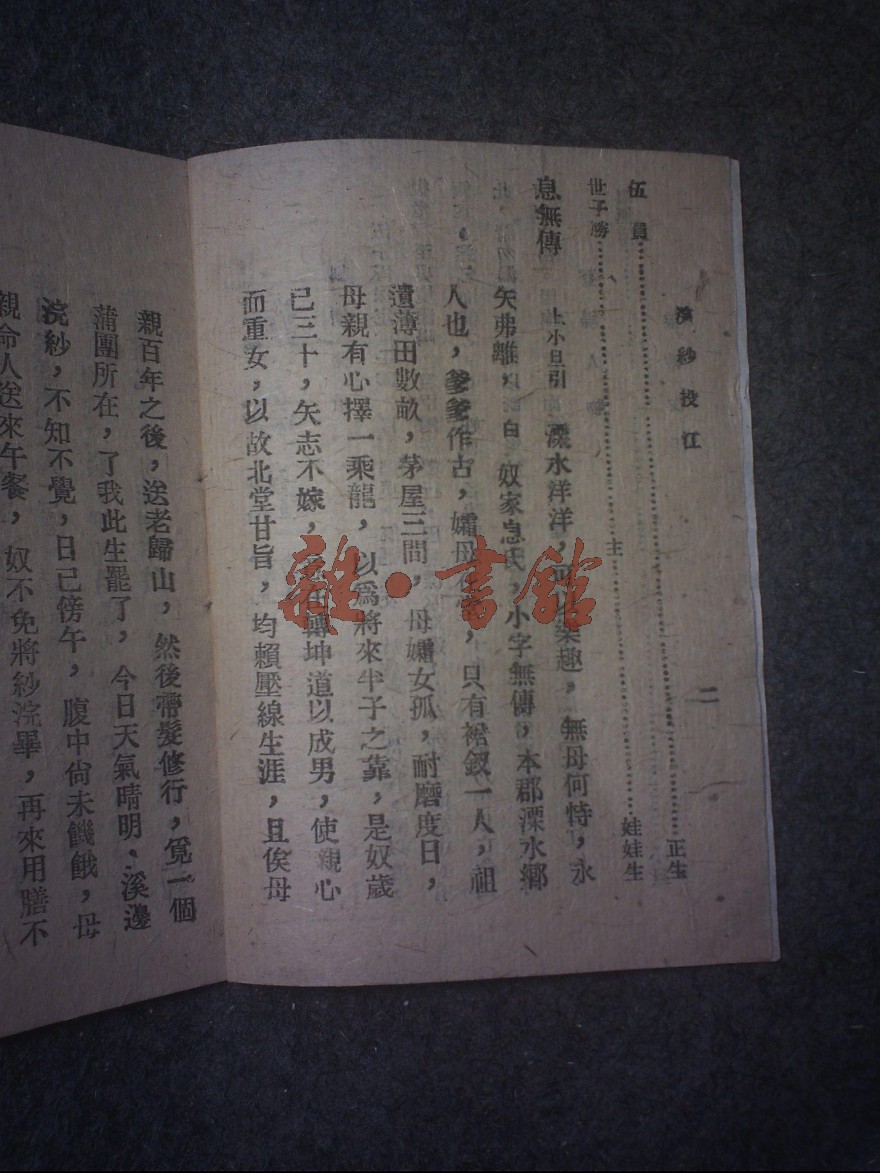 浣紗投江
二
伍員……正生
世子勝……主……娃娃生
息無傳 上小旦引 溧水洋洋，可 樂趣，無母何恃，永
矢弗離，白 奴家息氏，小字無傳，本郡溧水鄉
人也，爹爹作古，孀母在堂，只有裙釵一人，祖
遺薄田數畝，茅屋三間，母孀女孤，耐磨度日，
母親有心擇一乘龍，以爲將來半子之靠，是奴歲
已三十，矢志不嫁， 轉坤道以成男，使親心
而重女，以故北堂甘旨，均賴壓線生涯，且俟母
親百年之後，送老歸山，然後帶髮修行，覓一個
蒲團所在，了我此生罷了，今日天氣晴明，溪邊
浣紗，不知不覺，日已傍午，腹中尙未饑餓，母
親命人送來午餐，奴不免將紗浣畢，再來用膳不
雜·書館